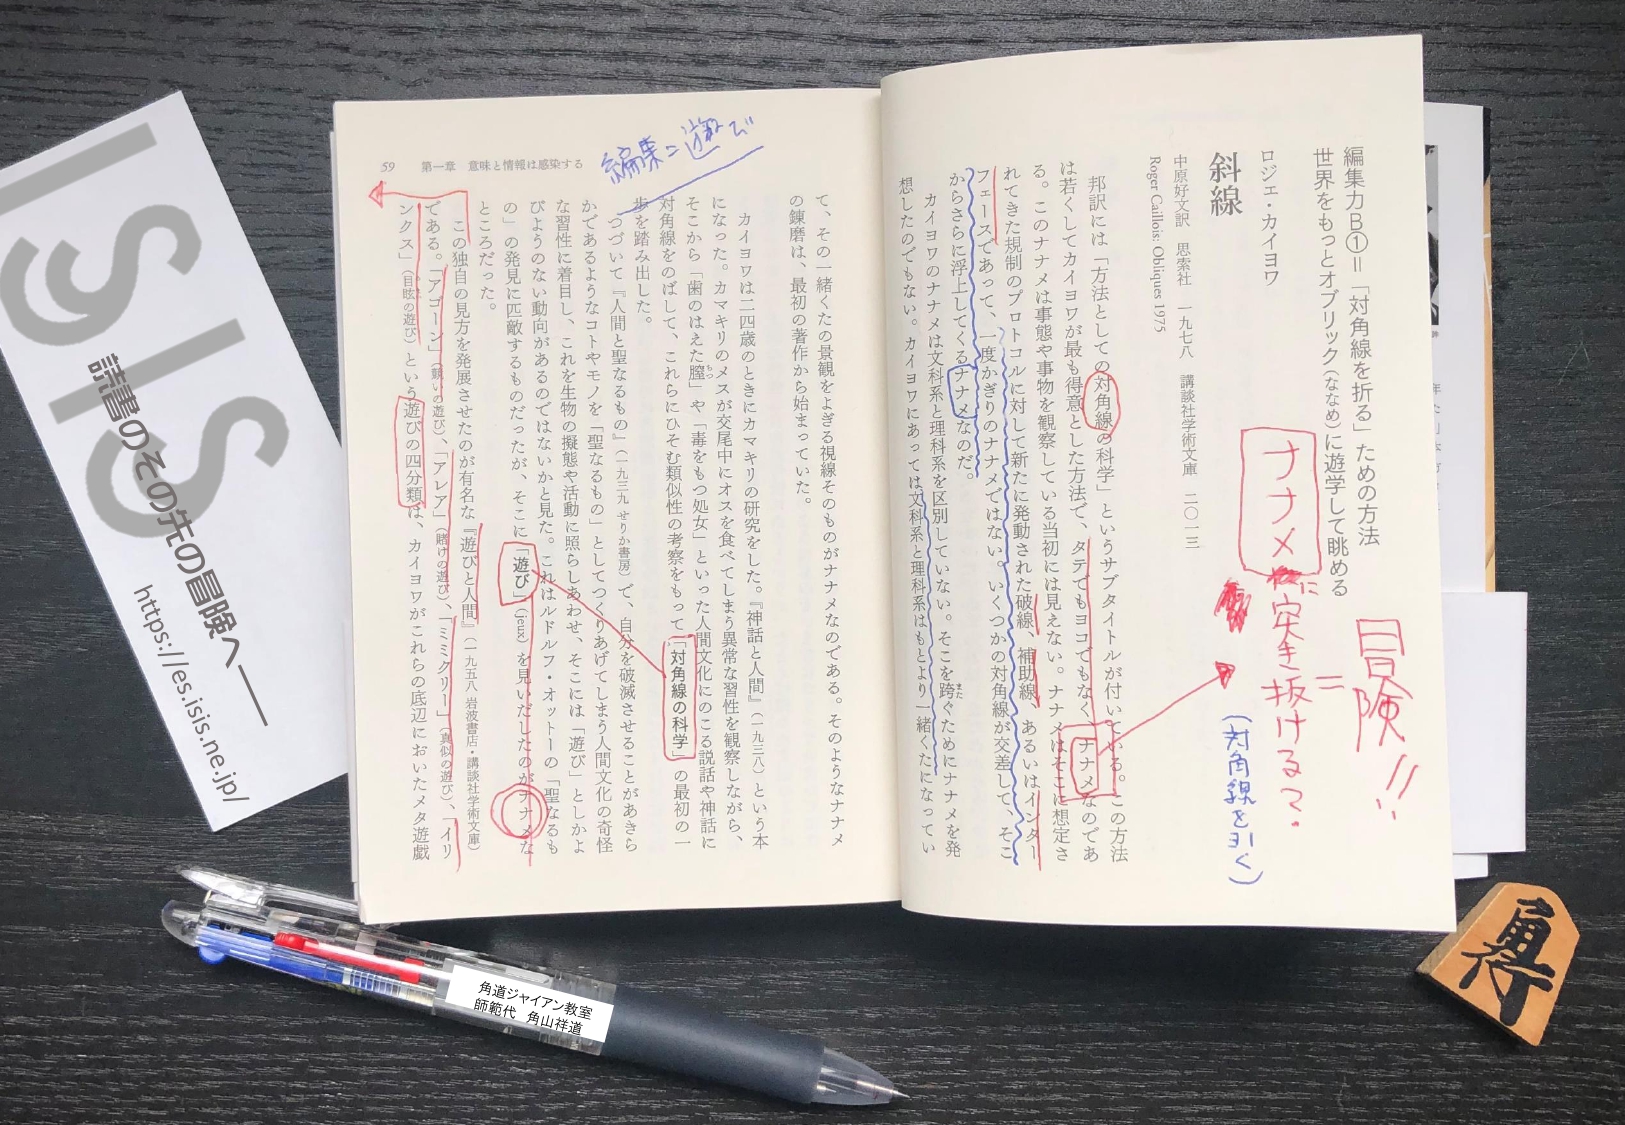 編集力B①＝「対角線を折る」ための方法
世界をもっとオブリック(ななめ)に遊学して眺める
ロジェ・カイヨワ
斜線
中原好文訳　思索社　一九七八　講談社学術文庫　二〇一三
Roger Caillois: Obliques 1975
邦訳には「方法としての対角線の科学」というサブタイトルが付いている。この方法
は若くしてカイヨワが最も得意とした方法で、タテでもヨコでもなく、ナナメなのであ
る。このナナメは事態や事物を観察している当初には見えない。ナナメはそこに想定さ
れてきた規制のプロトコルに対して新たに発動された破線、補助線、あるいはインター
フェースであって、一度かぎりのナナメではない。いくつかの対角線が交差して、そこ
からさらに浮上してくるナナメなのだ。
カイヨワのナナメは文科系と理科系を区別していない。そこを跨ぐためにナナメを発
また
想したのでもない。カイヨワにあっては文科系と理科系はもとより一緒くたになってい
冒険!!
＝
ナナメに突き抜ける？
(対角線を引く)
て、その一緒くたの景観をよぎる視線そのものがナナメなのである。そのようなナナメ
の錬磨は、最初の著作から始まっていた。
カイヨワは二四歳のときにカマキリの研究をした。『神話と人間』（一九三八）という本
になった。カマキリのメスが交尾中にオスを食べてしまう異常な習性を観察しながら、
そこから「歯のはえた膣」や「毒をもつ処女」といった人間文化にのこる説話や神話に
対角線をのばして、これらにひそむ類似性の考察をもって「対角線の科学」の最初の一
歩を踏み出した。
つづいて『人間と聖なるもの』（一九三九 せりか書房）で、自分を破滅させることがあきら
かであるようなコトやモノを「聖なるもの」としてつくりあげてしまう人間文化の奇怪
な習性に着目し、これを生物の擬態や活動に照らしあわせ、そこには「遊び」としかよ
びようのない動向があるのではないかと見た。これはルドルフ・オットーの「聖なるも
の」の発見に匹敵するものだったが、そこに「遊び」（jeux）を見いだしたのがナナメな
ところだった。
この独自の見方を発展させたのが有名な『遊びと人間』（一九五八 岩波書店・講談社学術文庫）
である。「アゴーン」（競いの遊び）、「アレア」（賭けの遊び）、「ミミクリー」（真似の遊び）、「イリ
ンクス」（目眩の遊び）という遊びの四分類は、カイヨワがこれらの底辺においたメタ遊戯
59　第一章　意味と情報は感染する
編集＝遊び
ISIS
読書のその先の冒険へ——
https://es.isis.ne.jp/
角道ジャイアン教室
師範代　角山祥道